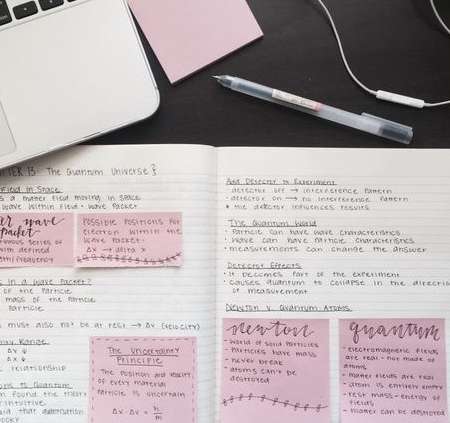 13 - The Quantum Universe
Field in Space
a matter field moving in space
wave within field - wave packet
wave
packet
series of
with defined
frequency
Possible positions for
electron within the
wave packet.
Δx → delta x
in a wave packet?
of the particle
mass of the particle
particle
must also not be at rest → Δv (velocity)
Range
Δv
Δv
relationship
to Quantum
found the theory
intuitive.
said that
The Uncertainty
Principle
The position and velocity
of every material
particle is uncertain
Δx · Δv = h/m
Add Detector to Experiment
detector off → interference pattern
detector on → no interference pattern
* the detector influences results
The Quantum World
• Particle can have wave characteristics
• wave can have particle characteristics
• measurements can change the answer
Detector Effects
• It becomes part of the experiment
• causes quantum to collapse in the direction
of measurement
Newton v. Quantum Atoms
newton
• world of solid particles
• Particles have mass
• never break
• atoms can't be
destroyed
quantum
• electromagnetic fields
are real - not made of
atoms
• matter fields are real
• atom is entirely empty
• rest mass - energy of
fields
• matter can be destroyed